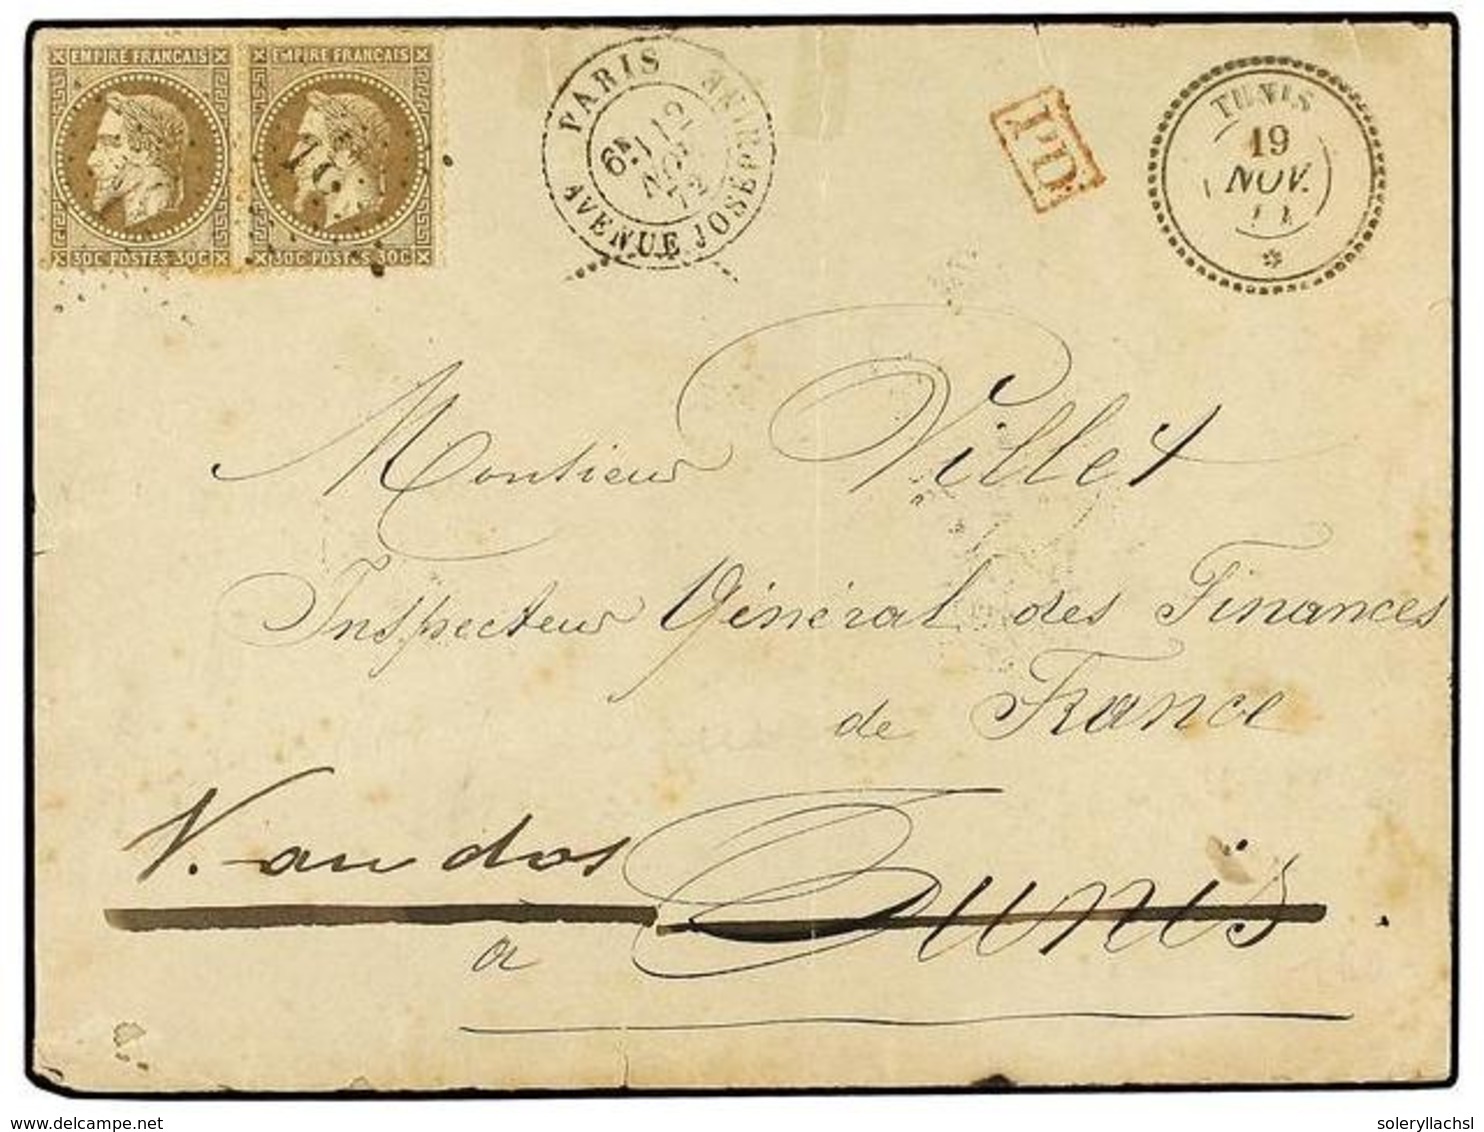 EMPIRE FRANCAIS EMPIRE FRANCAIS
30C POSTES 30C 30C POSTES 30C
PARIS
AVENUE JOSEPHINE
6E
NOV
72
PD
TUNIS
19
NOV.
Monsieur Villet
Inspecteur Général des Finances
de France
V. au dos
a Tunis
delcampe.net
soleryllachsl